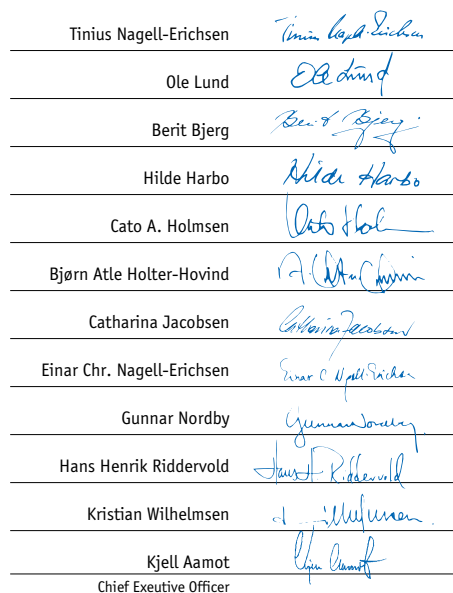 Tinius Nagell-Erichsen Tinius Nagell-Erichsen
Ole Lund Ole Lund
Berit Bjerg Berit Bjerg
Hilde Harbo Hilde Harbo
Cato A. Holmsen Cato
Bjørn Atle Holter-Hovind
Catharina Jacobsen Catharina Jacobsen
Einar Chr. Nagell-Erichsen Einar C Nagell-Erichsen
Gunnar Nordby Gunnar Nordby
Hans Henrik Riddervold Hans H Riddervold
Kristian Wilhelmsen
Kjell Aamot Kjell Aamot
Chief Exeutive Officer